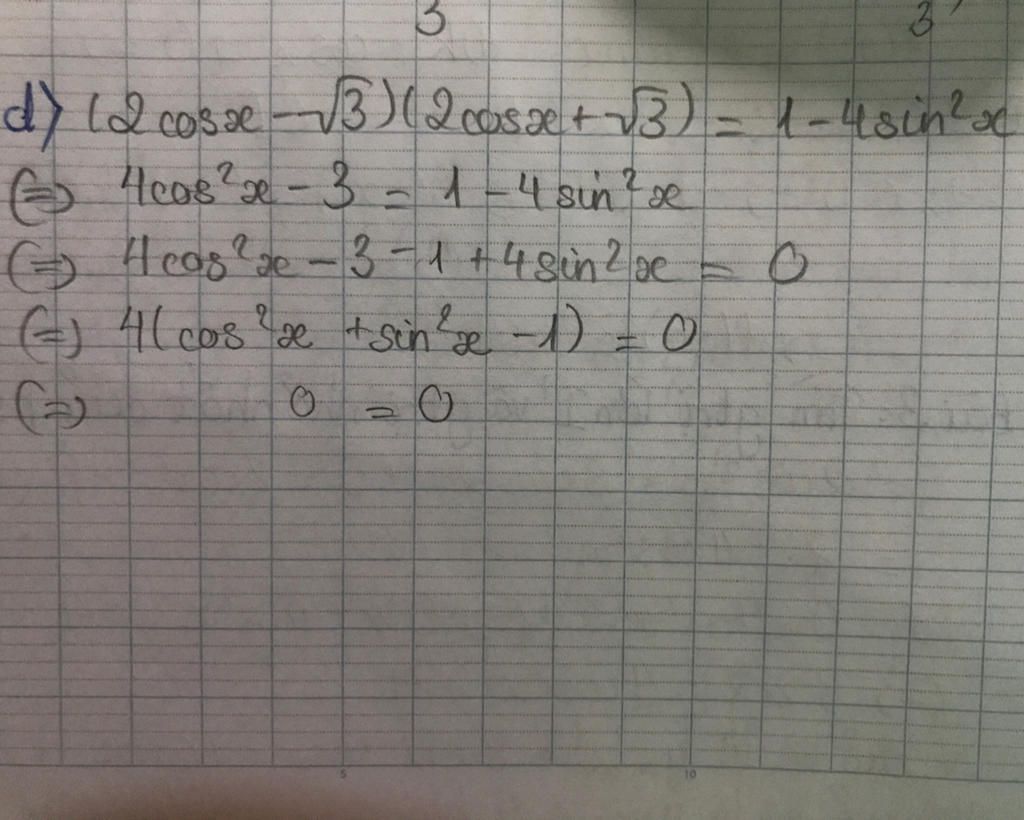 3 3
d) (2cosx - √3)(2cosx + √3) = 1 - 4sin²x
(=) 4cos²x - 3 = 1 - 4sin²x
(=) 4cos²x - 3 - 1 + 4sin²x = 0
(=) 4(cos²x + sin²x - 1) = 0
(=) 0 = 0
5 10